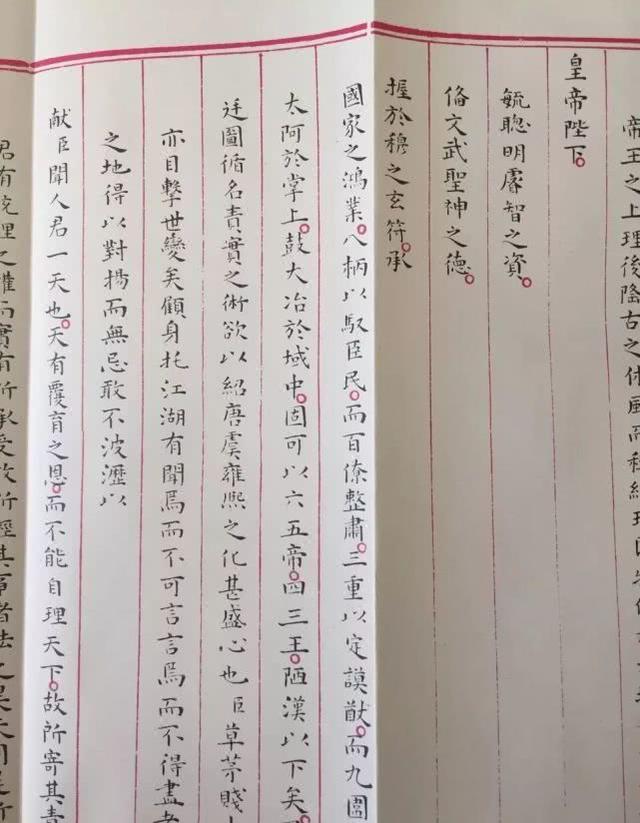 帝王之上理後隆古之休風而
皇帝陛下。
毓聰明睿智之資。
俻文武聖神之德。
握於穆之玄符。承
國家之鴻業。八柄以馭臣民。而百僚整肅。三重以定謨猷。而九圍
太阿於掌上。鼓大冶於域中。固可以六五帝。四三王。陋漢以下矣。
迋圖循名責實之術欲以紹唐虞雍熙之化甚盛心也臣草茅賤
亦目擊世變矣顧身托江湖有聞焉而不可言言焉而不得盡者
之地得以對揚而無忌敢不波瀝以
献臣聞人君一天也。天有覆育之恩。而不能自理天下。故所寄其責
君有統理之權而實有所承受故所經其事者